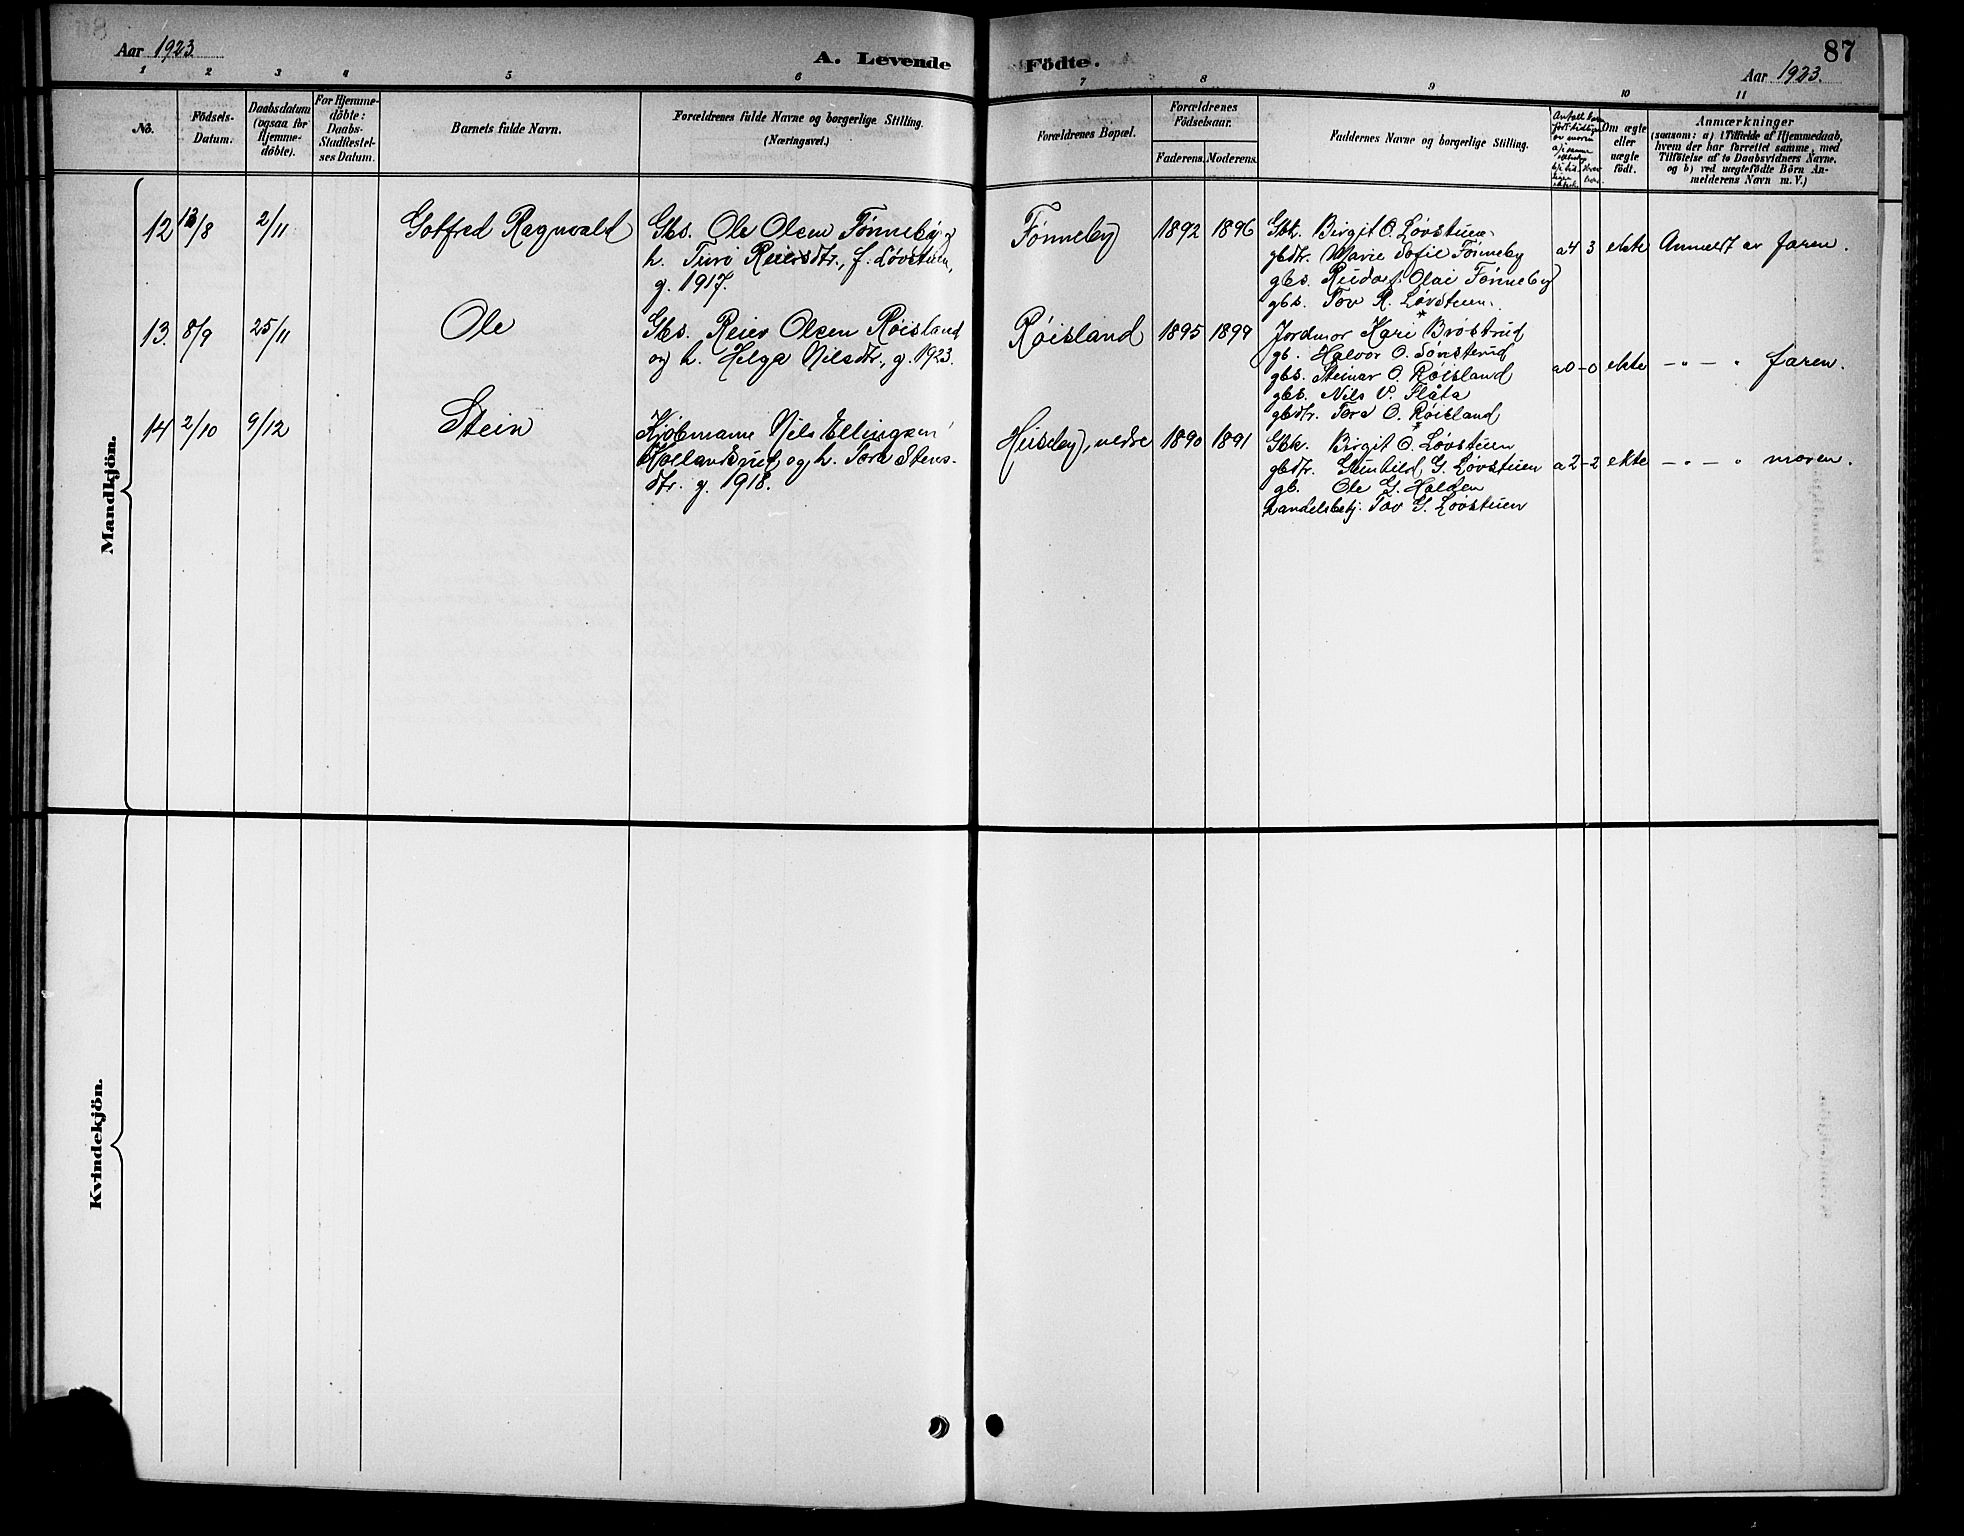 Aar 1923.
A. Levende Födte.
87
Aar 1923.
1 2 3 4 5 6 7 8 9 10 11
No.
Födsels-
Datum.
Daabsdatum
(ogsaa for
Hjemme-
döbte).
For Hjemme-
döbte:
Daabs-
Stadfæstel-
ses Datum.
Barnets fulde Navn.
Forældrenes fulde Navne og borgerlige Stilling.
(Næringsvei.)
Forældrenes Bopæl.
Forældrenes
Födselsaar.
Faderens. Moderens.
Faddernes Navne og borgerlige Stilling.
Antall barn
født tidligere
av moren
Om ægte
eller
uægte
födt.
Anmærkninger
(saasom: a) i Tilfælde af Hjemmedaab,
hvem der har forrettet samme, med
Tilföielse af to Daabsvidners Navne.
og b) ved uægtefödte Börn An-
melderens Navn m. V.)
Mandkjön.
12 13/8 2/11 Gotfred Ragnvald
Gbs. Ole Olsen Tønneby og
h. Turo Reiersdtr., f. Løvstuen,
g. 1917.
Tønneby 1892 1896
Gbk. Birgit O. Løvstuen.
gbdtr. Marie Sofie Tønneby
gbs. Rudolf Olai Tønneby
gbs. Tov R. Løvstuen.
a 4 3 ekte Anmeldt av faren.
13. 8/9 25/11 Ole
Gbs. Reier Olsen Røisland
og h. Helga Nilsdtr., g. 1923.
Røisland 1895 1899
Jordmor Kari Brøstrud
gb. Halvor O. Sønsterud
gbs. Steinar O. Røisland
gbs. Nils P. Flåta
gbdtr. Tora O. Røisland
a 0 - 0 ekte - " - " faren.
14 2/10 9/12 Stein
Kjøbmann Nils Ellingsen
Hollandsrud og h. Tora Stens-
dtr. g. 1918.
Huseby, nedre 1890 1891
Gbk. Birgit O. Løvstuen
gbdtr. Gunhild G. Løvstuen
gb. Ole G. Halden
handelsbetj. Tov G. Løvstuen
a 2 - 2 ekte - " - " moren.
Kvindekjön.